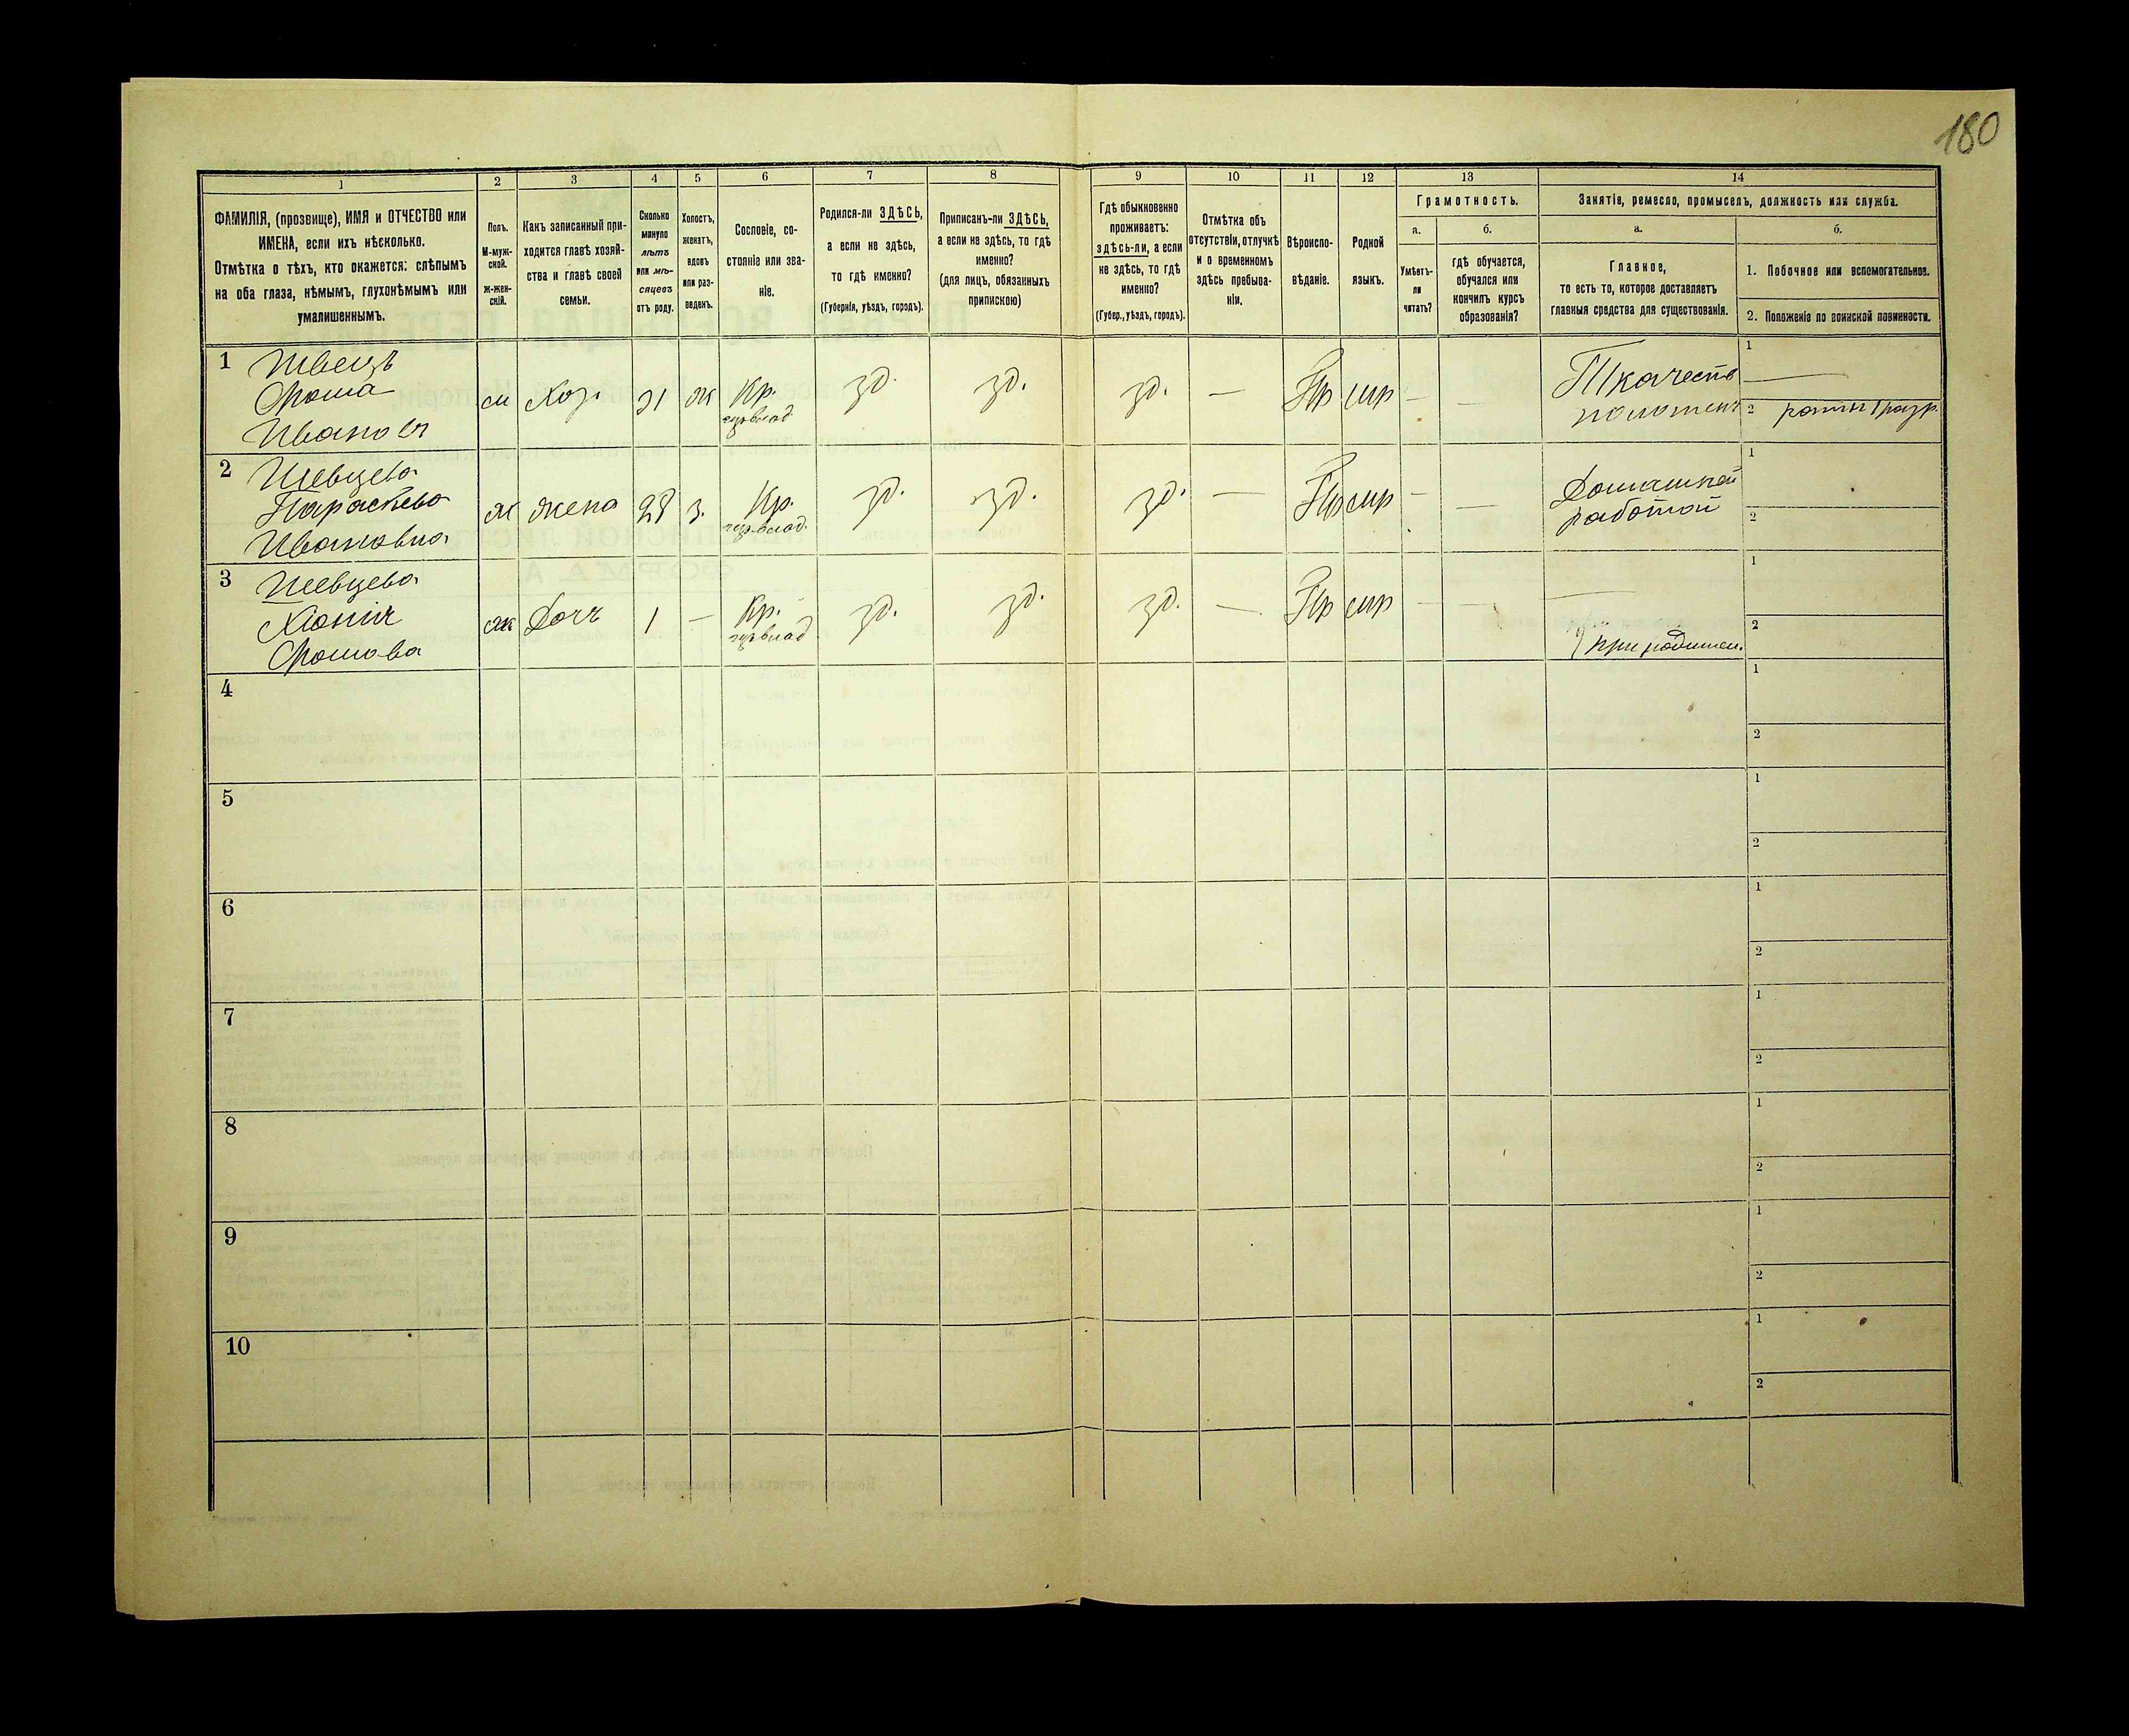 180
1
2
3
4
5
6
7
8
9
10
11
12
13
14
ФАМИЛІЯ, (прозвище), ИМЯ и ОТЧЕСТВО или
ИМЕНА, если ихъ нѣсколько.
Отмѣтка о тѣхъ, кто окажется: слѣпымъ
на оба глаза, нѣмымъ, глухонѣмымъ или
умалишеннымъ.
Полъ.
М-муж-
ской.
ж-жен-
скій.
Какъ записанный при-
ходится главѣ хозяй-
ства и главѣ своей
семьи.
Сколько
минуло
лѣтъ
или мѣ-
сяцевъ
отъ роду.
Холостъ,
женатъ,
вдовъ
или раз-
веденъ.
Сословіе, со-
стояніе или зва-
ніе.
Родился-ли ЗДѢСЬ,
а если не здѣсь,
то гдѣ именно?
(Губернія, уѣздъ, городъ).
Приписанъ-ли ЗДѢСЬ,
а если не здѣсь, то гдѣ
именно?
(для лицъ, обязанныхъ
припискою)
Гдѣ обыкновенно
проживаетъ:
здѣсь-ли, а если
не здѣсь, то гдѣ
именно?
(Губер., уѣздъ, городъ).
Отмѣтка объ
отсутствіи, отлучкѣ
и о временномъ
здѣсь пребыва-
ніи.
Вѣроиспо-
вѣданіе.
Родной
языкъ.
Грамотность.
а.
Умѣетъ-
ли
читать?
б.
гдѣ обучается,
обучался или
кончилъ курсъ
образованія?
Занятіе, ремесло, промыселъ, должность или служба.
а.
Главное,
то есть то, которое доставляетъ
главныя средства для существованія.
б.
1. Побочное или вспомогательное.
2. Положеніе по воинской повинности.
1
Швецъ
Ѳома
Ивановъ
м
Хоз.
31
ж
Кр.
зд.
зд.
зд.
—
Пр
мр
—
—
Ткачеств
полотенъ
1
—
2
ратн 1 разр.
2
Шевцева
Параскева
Ивановна
ж
жена
28
з.
Кр.
зд.
зд.
зд.
—
Пр
мр
—
—
Домашней
работой
1
2
3
Шевцева
Хіонія
Ѳомова
ж
Дочь
1
—
Кр.
зд.
зд.
зд.
—
Пр
мр
—
—
—
при родител.
1
2
4
1
2
5
1
2
6
1
2
7
1
2
8
1
2
9
1
2
10
1
2